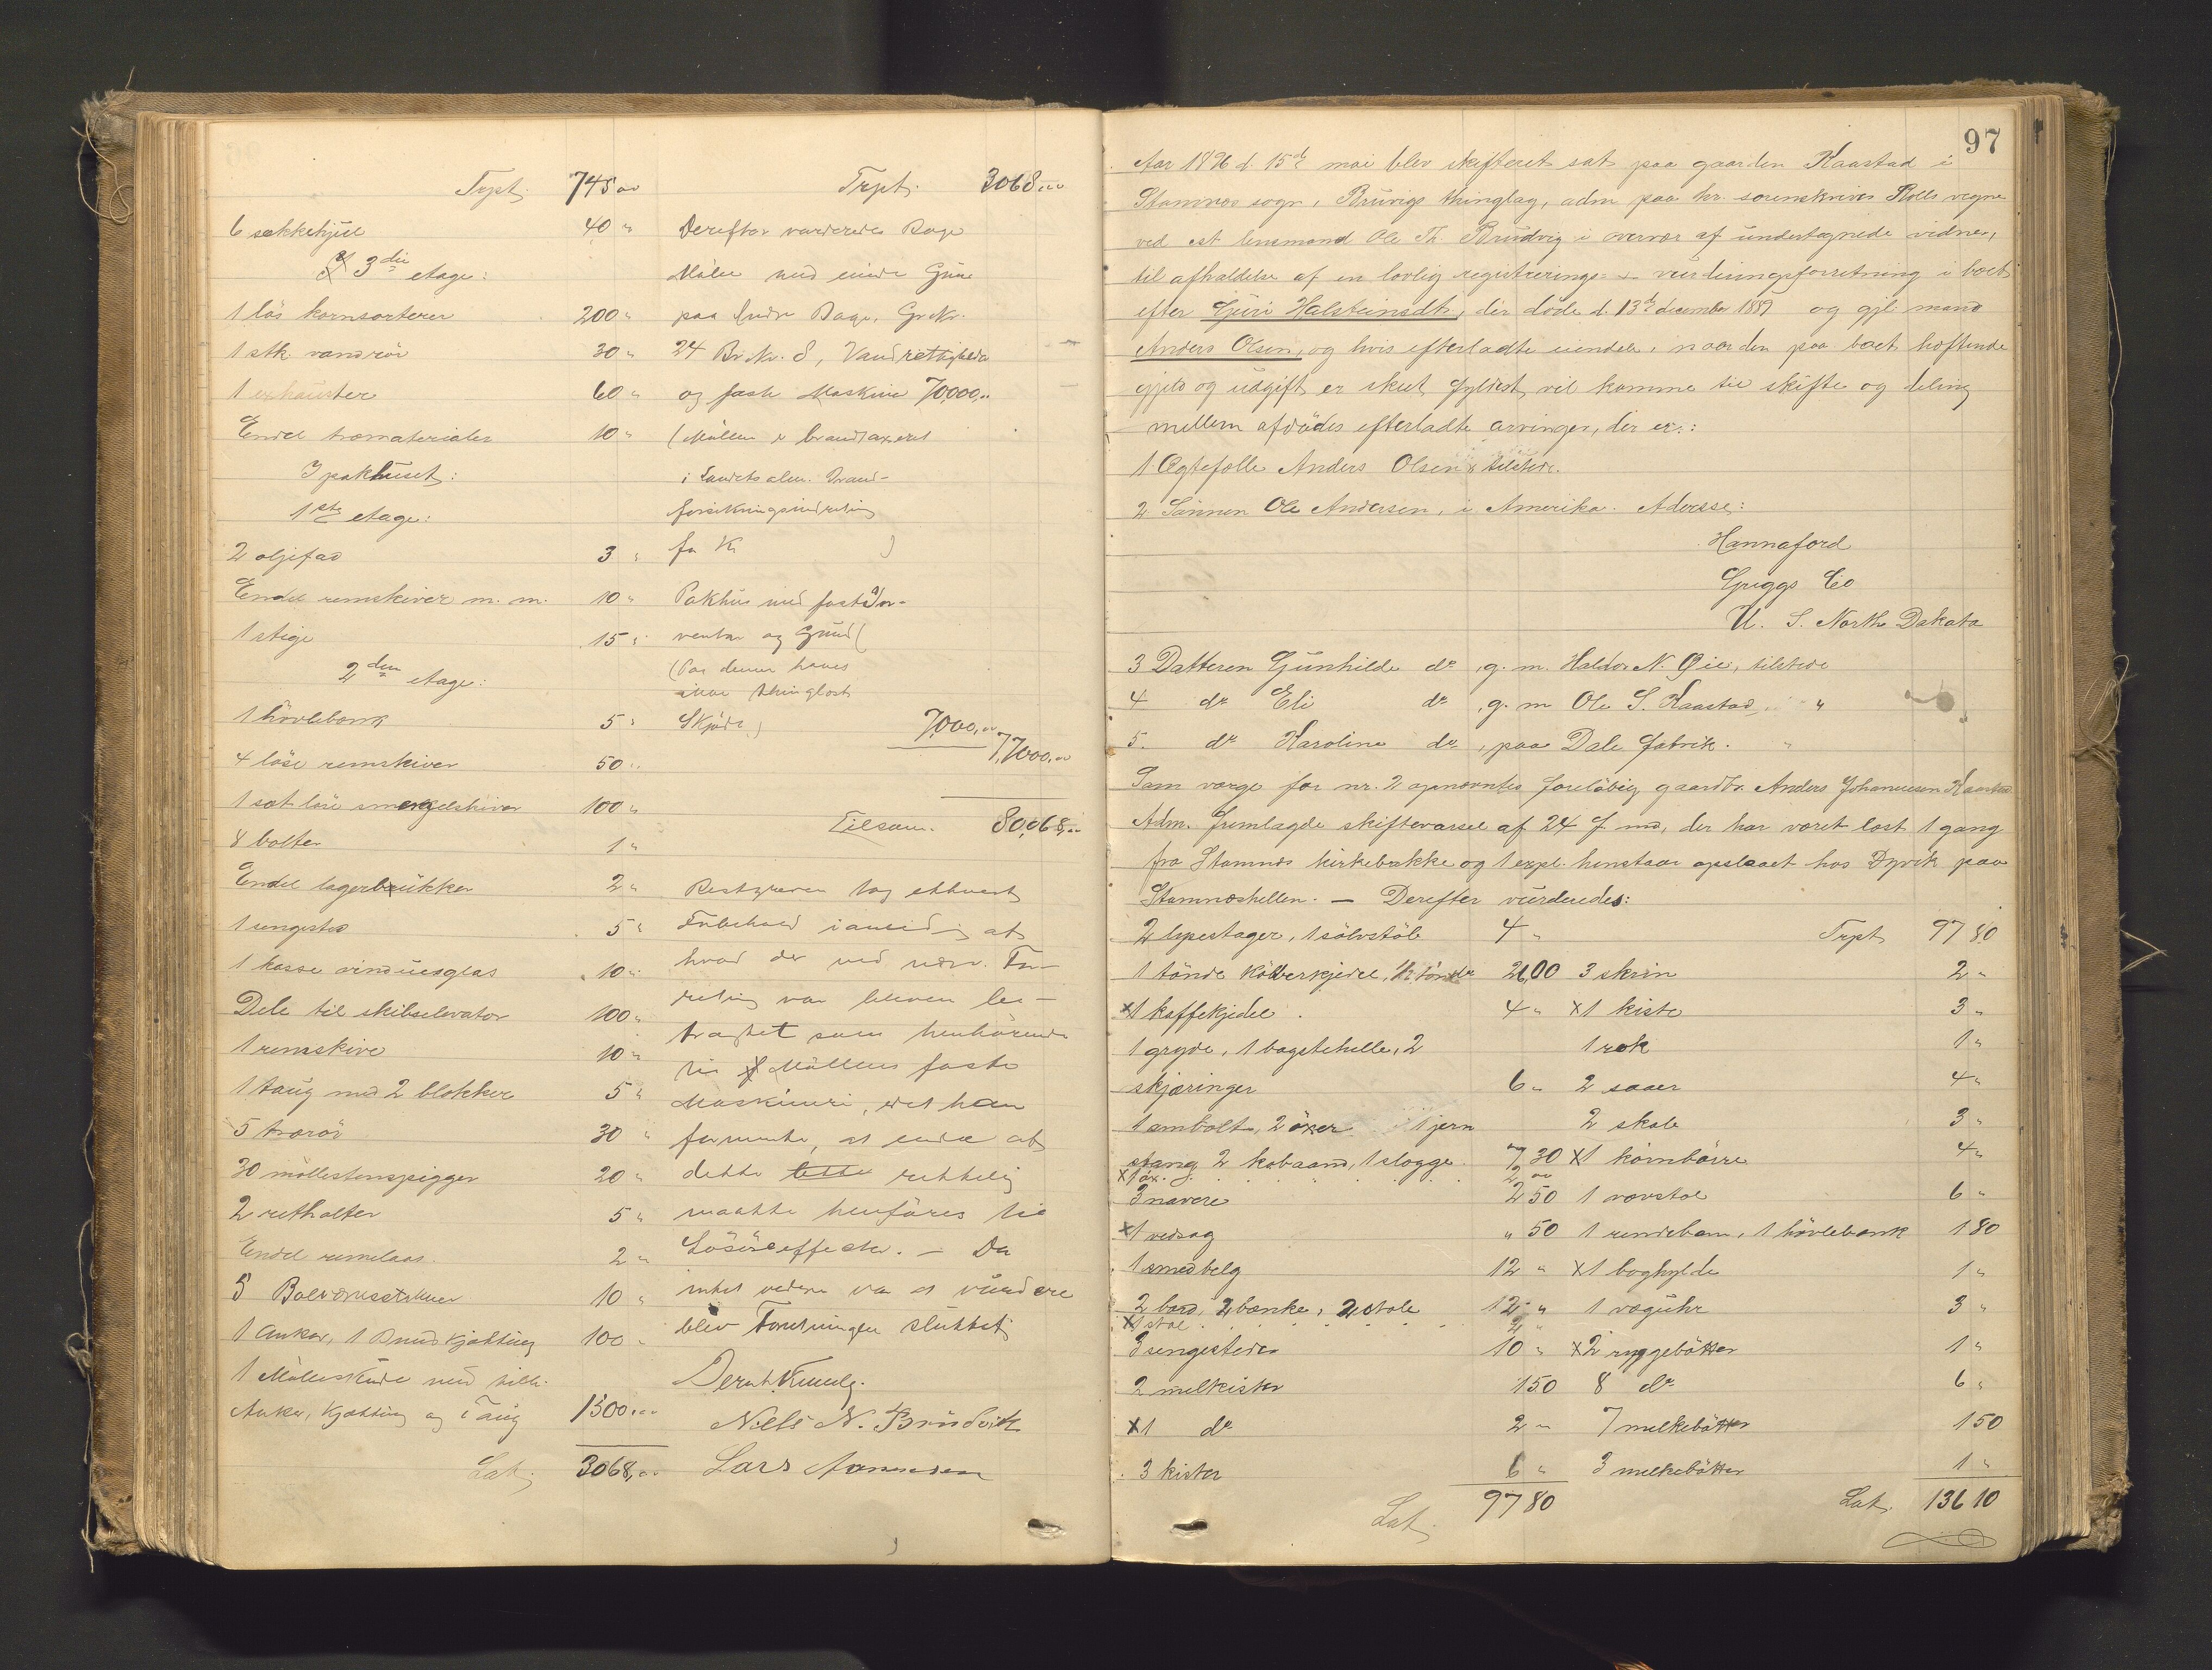 Trpt. 745 00
6 sækkehjul 40 "
3die etage:
1 lös kornsorterer 200 "
1 stk. vandrör 30 "
1 exhauster 60 "
Endel træmaterialer 10 "
I pakhuset:
1ste etage:
2 oljefad 3 "
Endel remskiver m. m. 10 "
1 stige 15 "
2den etage:
1 hövlebænk 5 "
4 löse remskiver 50 "
1 sæt löse smergelskiver 100 "
8 bolter 1 "
Endel lagerbukker 2 "
1 sengested 5 "
1 kasse vinduesglas 10 "
Dele til skibselevator 100 "
1 remskive 10 "
1 taug med 2 blokker 5 "
5 trærör 30 "
30 möllestenspigger 20 "
2 retholter 5 "
Endel remelaas 2 "
5 10 "
1 Anker, 1 kjætting 100 "
1 Mölleskude med
Anker, Kjætting og Taug 1300,00
Lat. 3068,00
Trpt. 3068,00
Derefter vurderedes Dage
Mölle med Grund
paa Indre Dage, Gr. Nr.
24 Br. Nr. 8, Vandrettigheder
og faste Maskiner 70,000,00
(Möllen er brandtaxeret
i Landets alm. Brand-
forsikringsindretning
for Kr )
Pakhus med faste In-
ventar og Grund (
(Paa denne haves
ikke thinglæst
Skjöde) 7,000,00
77,000,00
Tilsam. 80,068,00
tog ethvert
Forbehold i anledning at
hvad der ved nærv. For-
retning var bleven be-
tragtet som henhörende
til Möllens faste
Maskineri, idet han
formente, at endel at
dette rettelig
maatte henföres til
Lösöreeffecter. — Da
intet videre var at vurdere
blev Forretningen sluttet
Bernt
Niels N. Brudvik
Lars
97
Aar 1896 d. 15de mai blev skifteret sat paa gaarden Kaastad i
Stamnes sogn, Bruvigs thinglag, adm paa hr. sorenskriver Rolls vegne
ved cst lensmand Ole Th. Brudvig i overvær af undertegnede vidner,
til afholdelse af en lovlig registrerings- & vurderingsforretning i boet
efter Guri Halsteinsdtr, der döde d. 13de december 1889 og gjl. mand
Anders Olsen, og hvis efterladte eiendele, naar den paa boet heftende
gjæld og udgift er skeet fyldest, vil komme til skifte og deling
mellem afdödes efterladte arvinger, der er:
1 Ægtefælle Anders Olsen, tilstede.
2. Sönnen Ole Andersen, i Amerika. Adresse:
Hannaford
Griggs Co
U. S. North Dakota
3 Datteren Gunhilde do , g. m. Haldor N. Öie, tilstede
4 do Eli do , g. m Ole S. Kaastad, "
5. do Karoline do , paa Dale fabrik. "
Som værge for nr. 2 opnævntes foreløbig gaardbr. Anders Johannesen Kaastad
Adm. fremlagde skiftevarsel af 24 f. md, der har været læst 1 gang
fra Stamnes kirkebakke og 1 expl. henstaar opslaaet hos Dyvik paa
Stamneshellen. — Derefter vurderedes:
2 lysestager, 1 sölvstöb 4 "
1 tönde kobberkjedel, 1/2 tönde 26 00
x1 kaffekjedel 4 "
1 gryde, 1 bagstehelle, 2
skjæringer 6 "
1 ambolt, 2 öxer 1 jern
stang 2 kobaand, 1 slegge 7 30
x1 öx. 2 00
3 navere 2 50
x1 vedsag " 50
1 smedbelg 12 "
2 bord, 2 bænke, 2 stole 12 "
x1 stol 2 "
3 sengesteder 10 "
2 melkister 1 50
x1 do 2 "
3 kister 6 "
Lat. 97 80
Trpt 97 80
3 skrin 2 "
x1 kiste 3 "
1 rok 1 "
2 saaer 4 "
2 skabe 3 "
x1 kornbörre 4 "
1 vævstol 6 "
1 rendebom, 1 hövlebænk 1 80
x1 boghylde 1 "
1 væguhr 3 "
x2 ryggebötter 1 "
8 do 6 "
7 melkebötter 1 50
3 melkebötter 1 "
Lat. 136 10